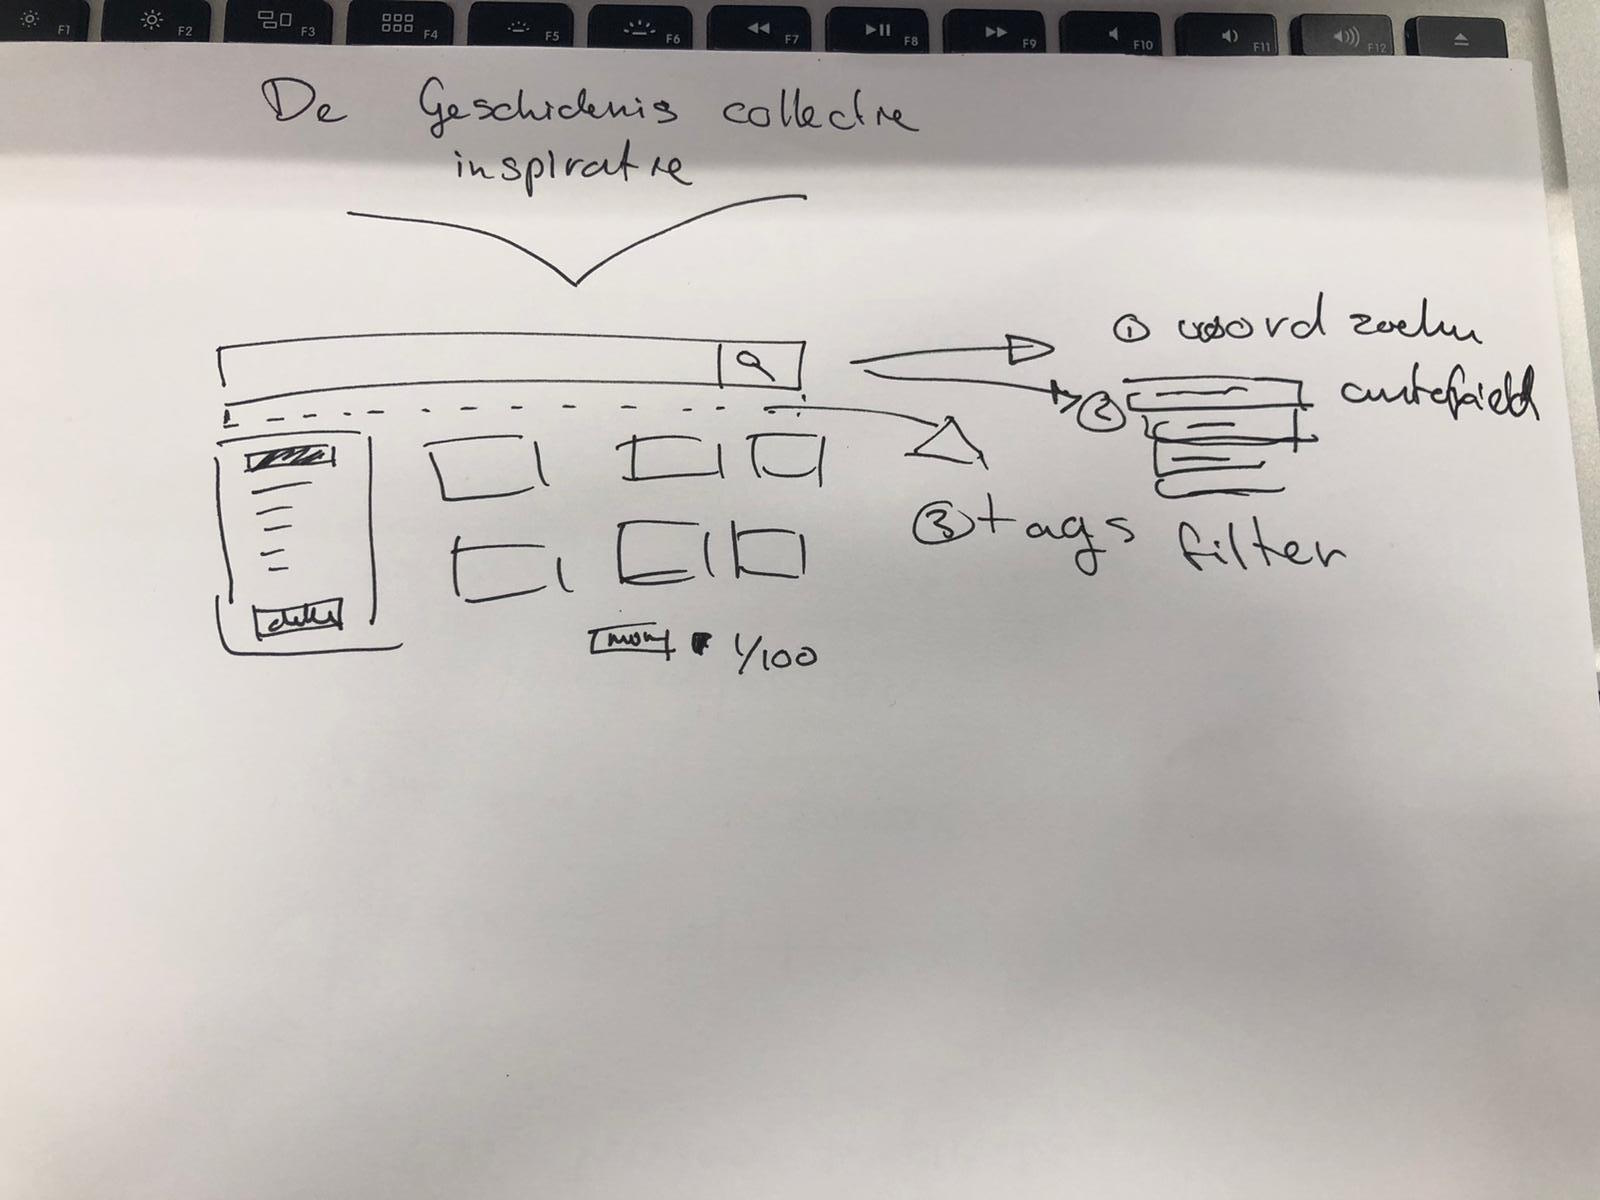 F1 F2 F3 F4 F5 F6 F7 F8 F9 F10 F11 F12
De Geschidenis collectie
inspiratie
① woord zoeken
②
③ tags filter
1/100